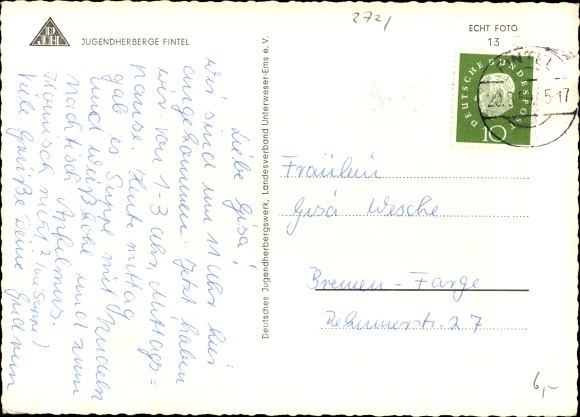 2721
DJH
JUGENDHERBERGE FINTEL
ECHT FOTO
13
DEUTSCHE BUNDESPOST
10
Liebe Gisa!
Wir sind um 11 Uhr hier
angekommen. Jetzt haben
wir von 1-3 Uhr Mittags=
pause. Heute mittag
gab es Suppe mit Nudeln
und und zum
Nachtisch Apfelmus.
nicht 2 (wie Suppe)
Viele Grüße Deine Gudrun
Deutsches Jugendherbergswerk, Landesverband Unterweser-Ems e. V.
Fräulein
Gisa Wesche
Bremen-Farge
27
6,-